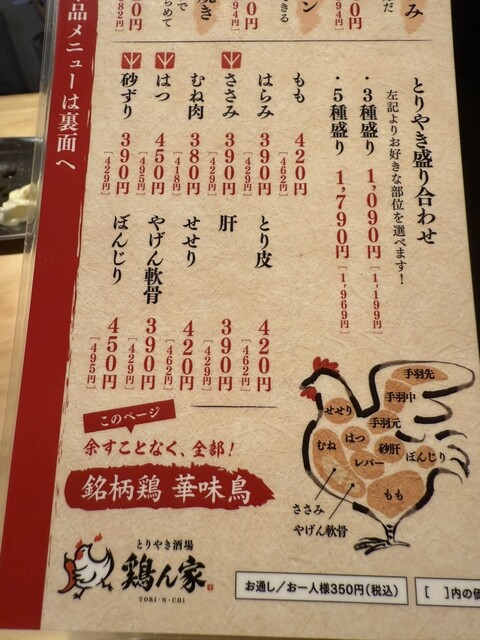 とりやき盛り合わせ
左記よりお好きな部位を選べます！
・3種盛り 1,090円 [1,199円]
・5種盛り 1,790円 [1,969円]
もも 420円 [462円]
はらみ 390円 [429円]
ささみ 390円 [429円]
むね肉 380円 [418円]
はつ 450円 [495円]
砂ずり 390円 [429円]
とり皮 420円 [462円]
肝 390円 [429円]
せせり 420円 [462円]
やげん軟骨 390円 [429円]
ぼんじり 450円 [495円]
品メニューは裏面へ
このページ
余すことなく、全部！
銘柄鶏 華味鳥
手羽先
手羽中
手羽元
せせり
むね
はつ
砂肝
レバー
ぼんじり
もも
ささみ
やげん軟骨
とりやき酒場
鶏ん家
TORI-N-CHI
お通し／お一人様350円(税込)
[ ]内の価